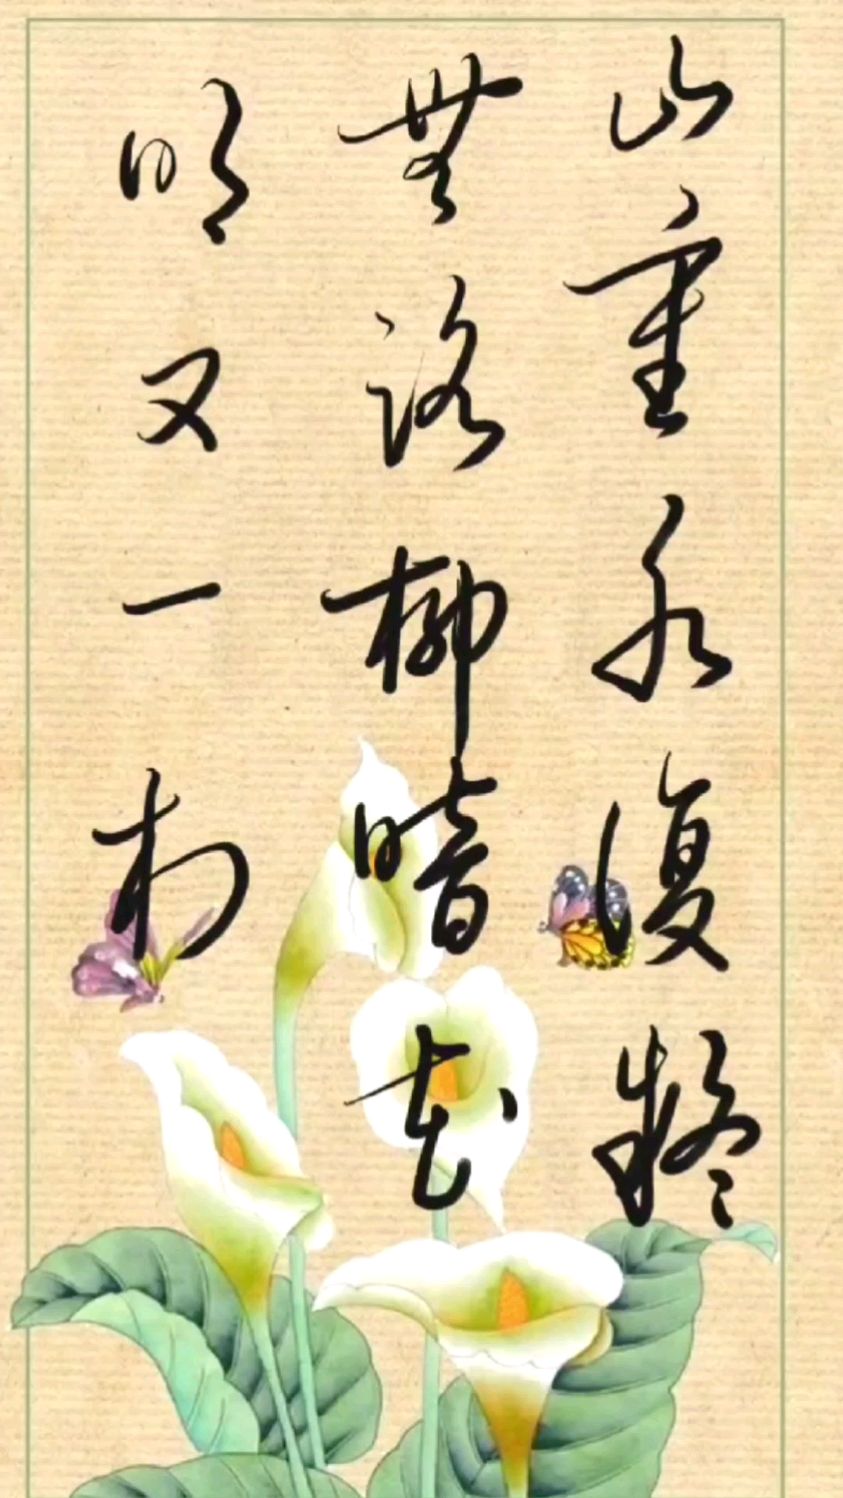 山重水復疑
無路柳暗花
明又一村